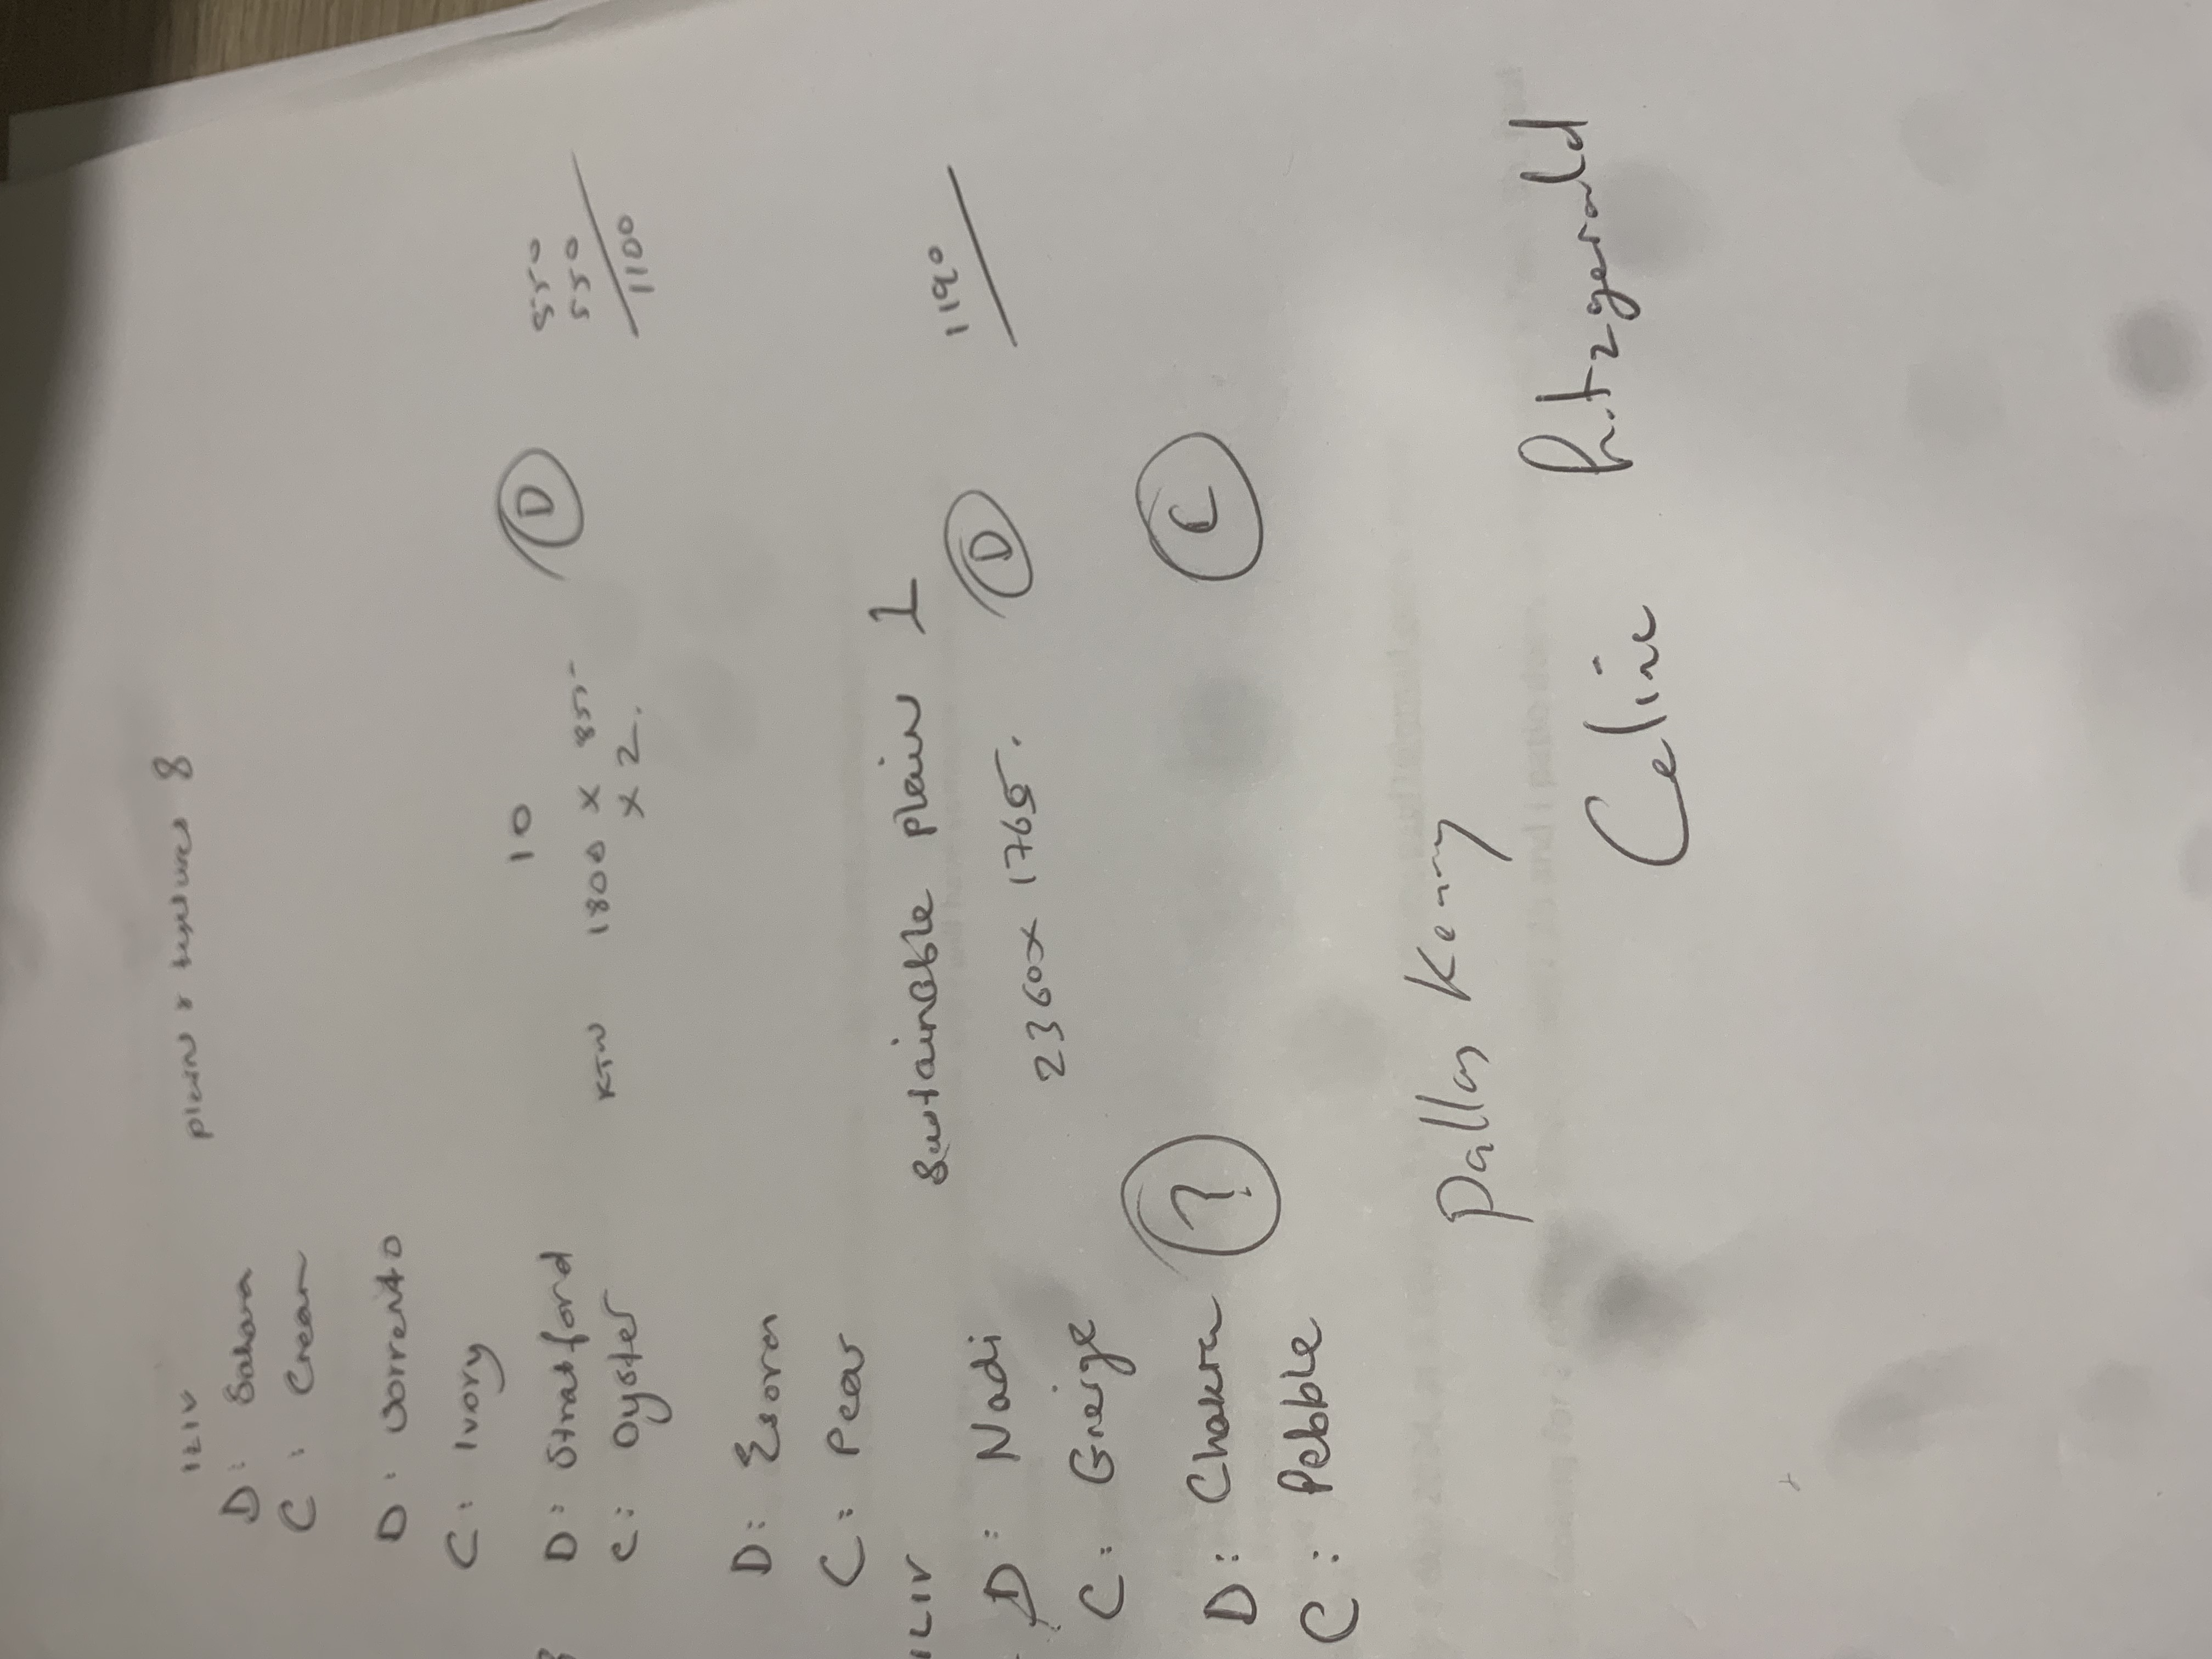 ILIV plains & textures 8
D: Sahara
C: Cream
D: Sorrento
C: Ivory 10
D: Stratford D 550
C: Oyster 1800 x 855 550
x 2. 1100
D: Esora
C: Pear
ILIV Sustainable plain 1
D: Nadi D 1190
C: Greige 2360 x 1765.
D: Chakra ? C
C: Pebble
Pallas Kenry
Celine Fitzgerald